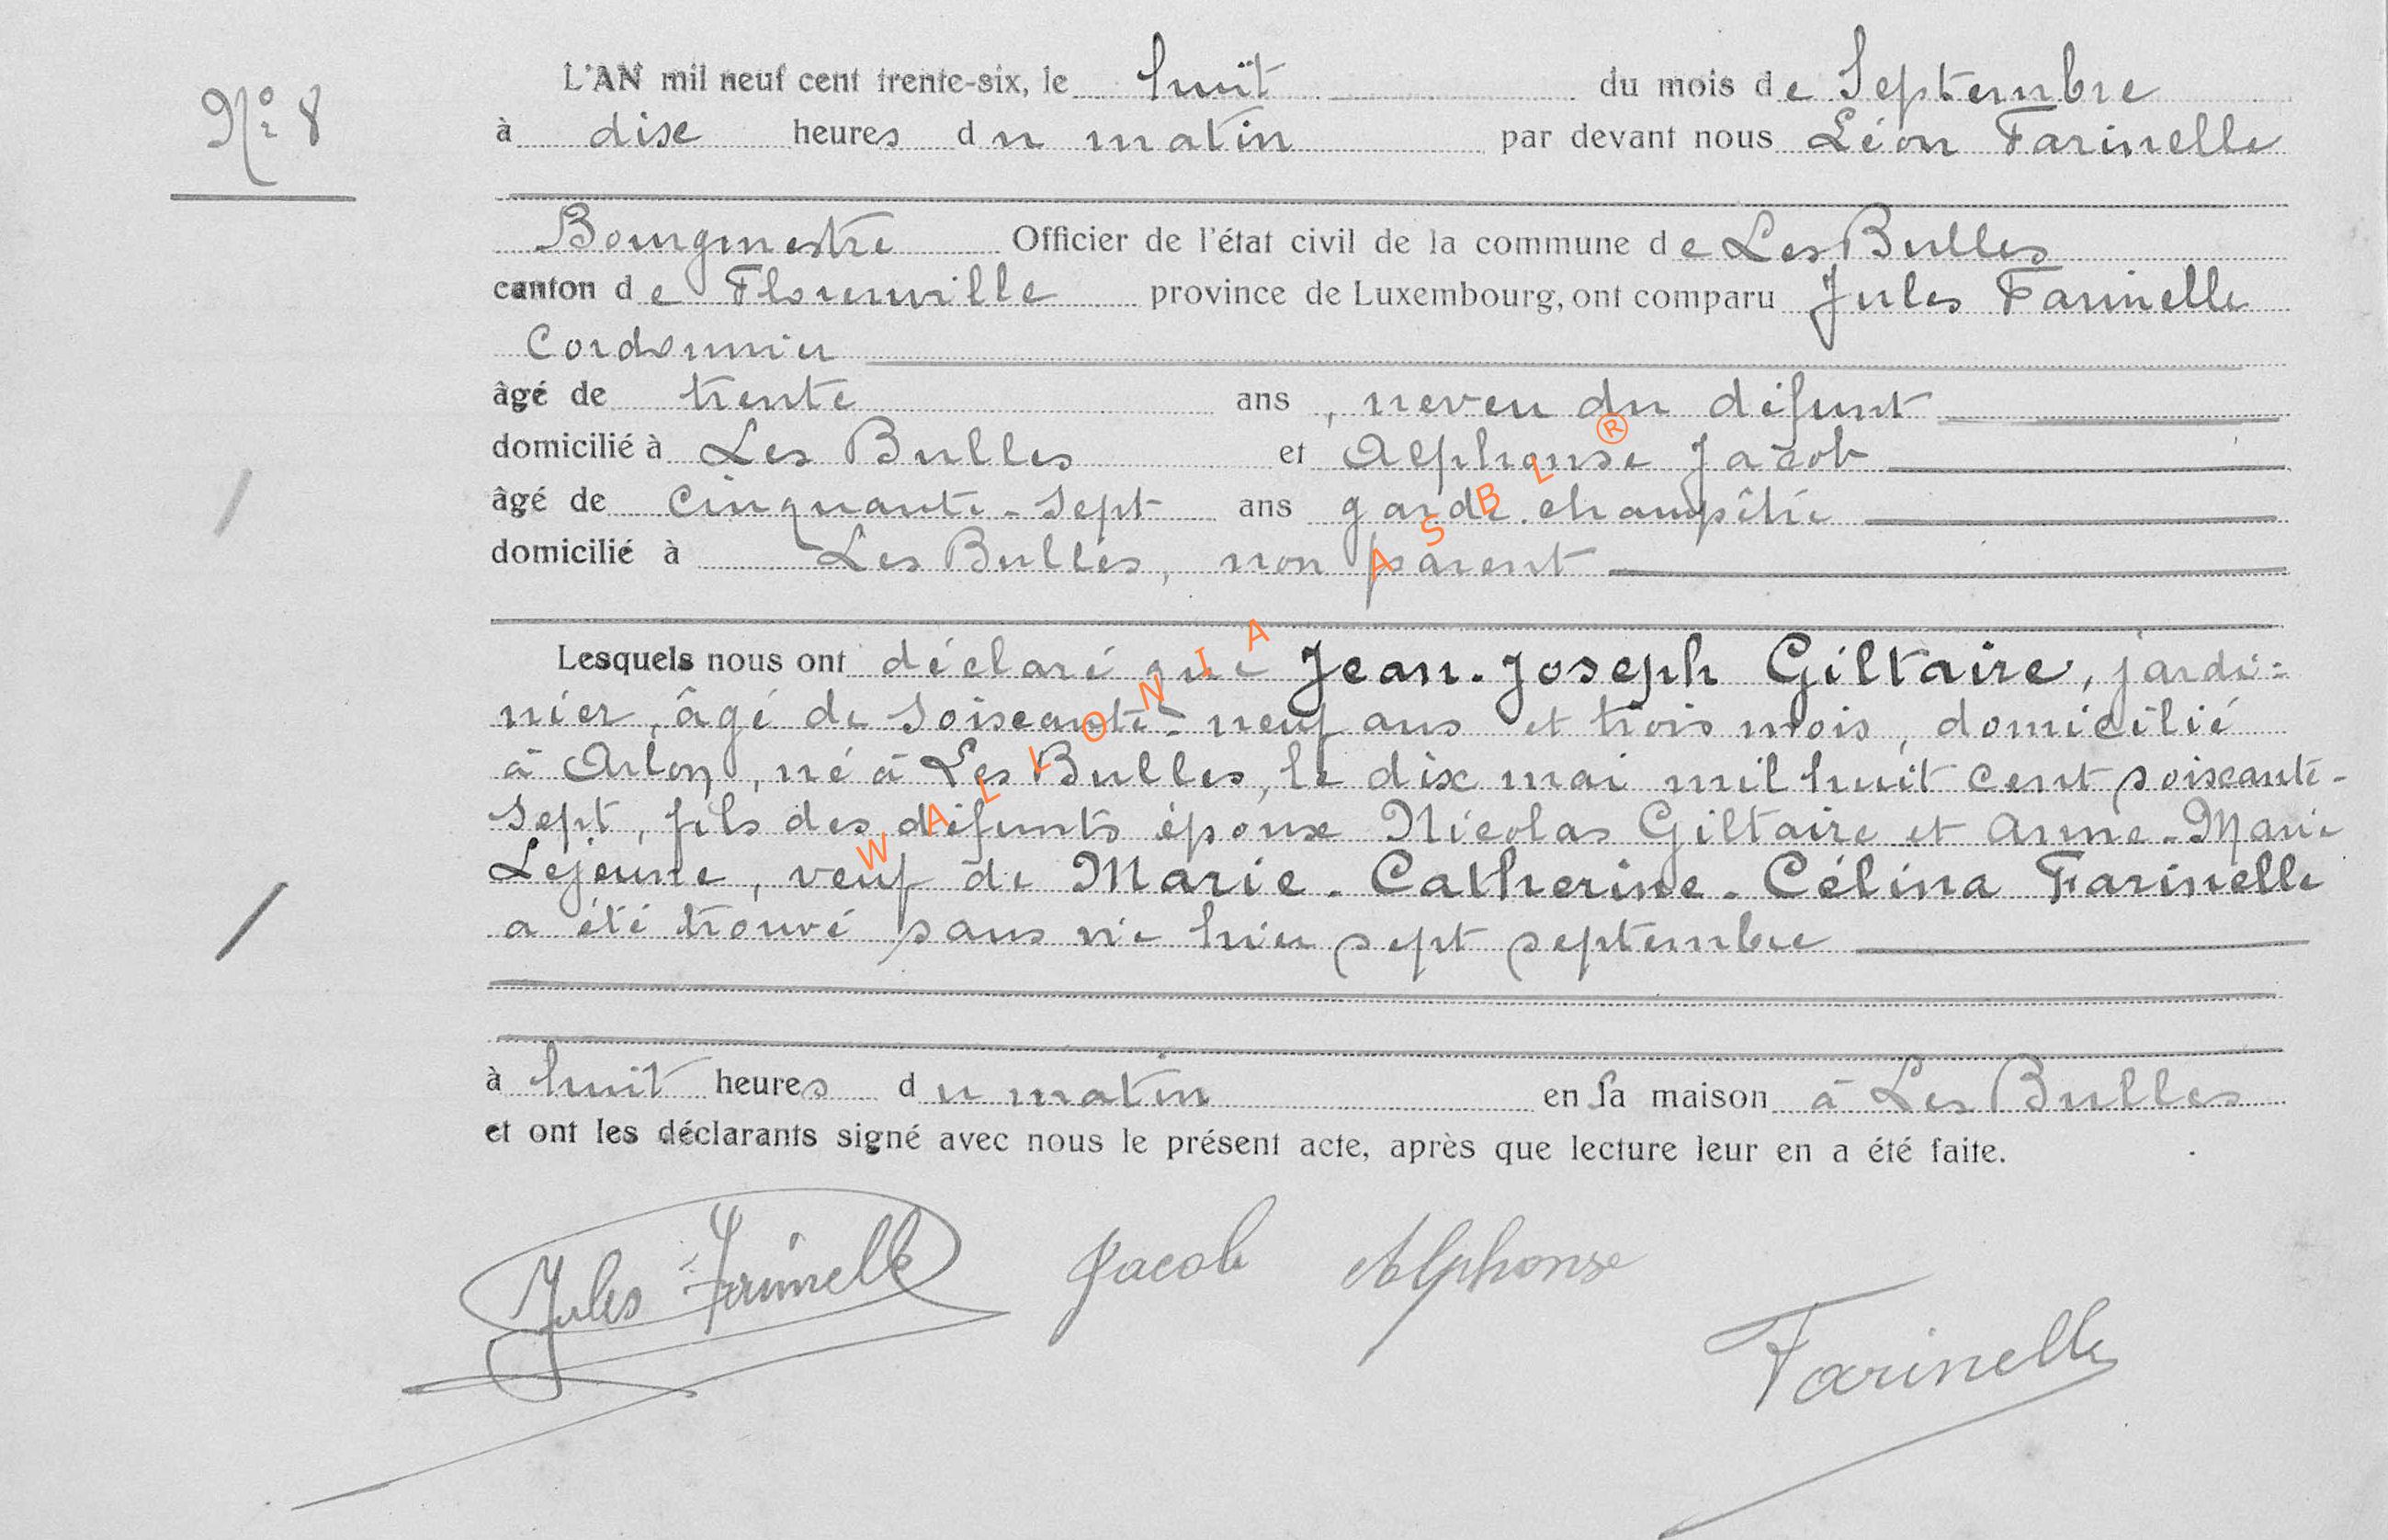 N° 8
L'AN mil neuf cent trente-six, le huit du mois de Septembre
à dix heures du matin par devant nous Léon Farinelle
Bourgmestre Officier de l'état civil de la commune de Les Bulles
canton de Florenville province de Luxembourg, ont comparu Jules Farinelle
Cordonnier
âgé de trente ans, neveu du défunt
domicilié à Les Bulles et Alphonse Jacob
âgé de Cinquante-sept ans garde-champêtre
domicilié à Les Bulles, non parent
Lesquels nous ont déclaré que Jean-Joseph Giltaire, jardi=
nier, âgé de soixante-neuf ans et trois mois, domicilié
à Arlon, né à Les Bulles, le dix mai mil huit cent soixante-
sept, fils des défunts époux Nicolas Giltaire et Anne-Marie
Lejeune, veuf de Marie-Catherine-Célina Farinelle
a été trouvé sans vie hier sept septembre
à huit heures du matin en sa maison à Les Bulles
et ont les déclarants signé avec nous le présent acte, après que lecture leur en a été faite.
Jules Farinelle Jacob Alphonse
Farinelle
WALLONIA ASBL ®